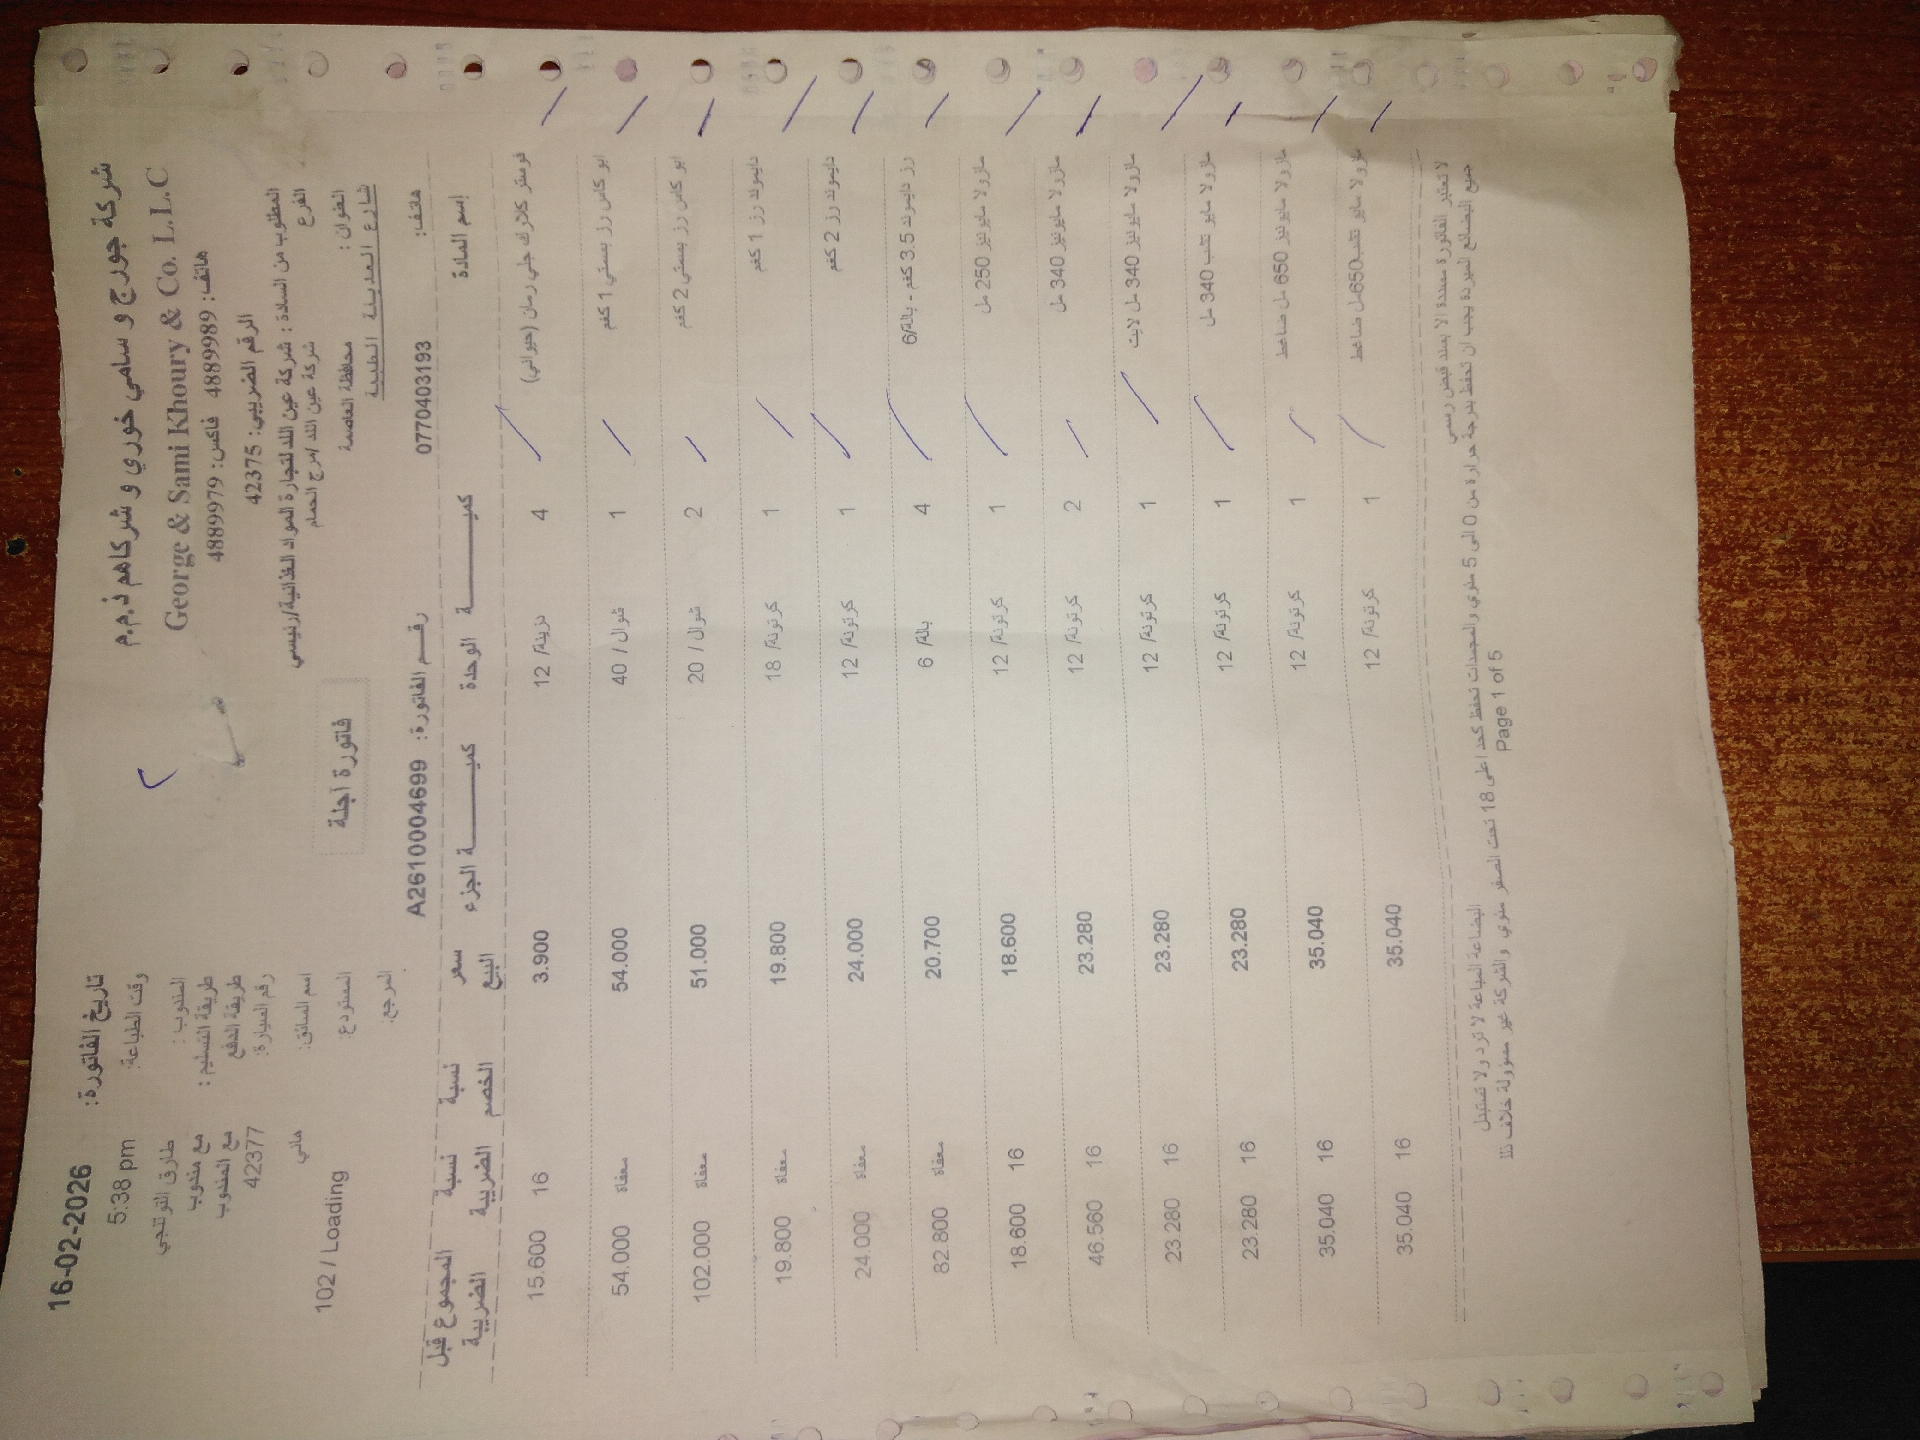 شركة جورج و سامي خوري و شركاهم ذ.م.م
George & Sami Khoury & Co. L.L.C
هاتف: 4889989 فاكس: 4889979
الرقم الضريبي: 42375
المطلوب من السادة : شركة عين اللد لتجارة المواد الغذائية/رئيسي
الفرع شركة عين اللد /مرج الحمام
العنوان : محافظة العاصمة
شارع المدينة الطبية
هاتف: 0770403193
تاريخ الفاتورة: 16-02-2026
وقت الطباعة: 5:38 pm
المندوب : طارق
طريقة التسليم : مع مندوب
طريقة الدفع مع المندوب
رقم السيارة: 42377
اسم السائق: هاني
المستودع: 102 / Loading
المرجع:
فاتورة آجلة
رقم الفاتورة: A2610004699
إسم المادة كميـــة الوحدة كميـــة الجزء سعر البيع نسبة الخصم نسبة الضريبة المجموع قبل الضريبة
فومنتر كلارك جلي رمان (حيواني) 4 دزينة/ 12 3.900 16 15.600
ابو كاس رز بسمتي 1 كغم 1 شوال / 40 54.000 معفاة 54.000
ابو كاس رز بسمتي 2 كغم 2 شوال / 20 51.000 معفاة 102.000
دايموند رز 1 كغم 1 كرتونة/ 18 19.800 معفاة 19.800
دايموند رز 2 كغم 1 كرتونة/ 12 24.000 معفاة 24.000
رز دايموند 3.5 كغم - بالة/6 4 بالة/ 6 20.700 معفاة 82.800
مازولا مايونيز 250 مل 1 كرتونة/ 12 18.600 16 18.600
مازولا مايونيز 340 مل 2 كرتونة/ 12 23.280 16 46.560
مازولا مايونيز 340 مل لايت 1 كرتونة/ 12 23.280 16 23.280
مازولا مايو تشب 340 مل 1 كرتونة/ 12 23.280 16 23.280
مازولا مايونيز 650 مل ضاغط 1 كرتونة/ 12 35.040 16 35.040
مازولا مايو تشب650مل ضاغط 1 كرتونة/ 12 35.040 16 35.040
لا تعتبر الفاتورة مسددة الا بسند قبض رسمي البضاعة المباعة لا ترد ولا تستبدل
جميع البضائع المبردة يجب ان تحفظ بدرجة حرارة من 0 الى 5 مئوي والمجمدات تحفظ كحد اعلى 18 تحت الصفر مئوي والشركة غير مسؤولة خلاف ذلك
Page 1 of 5